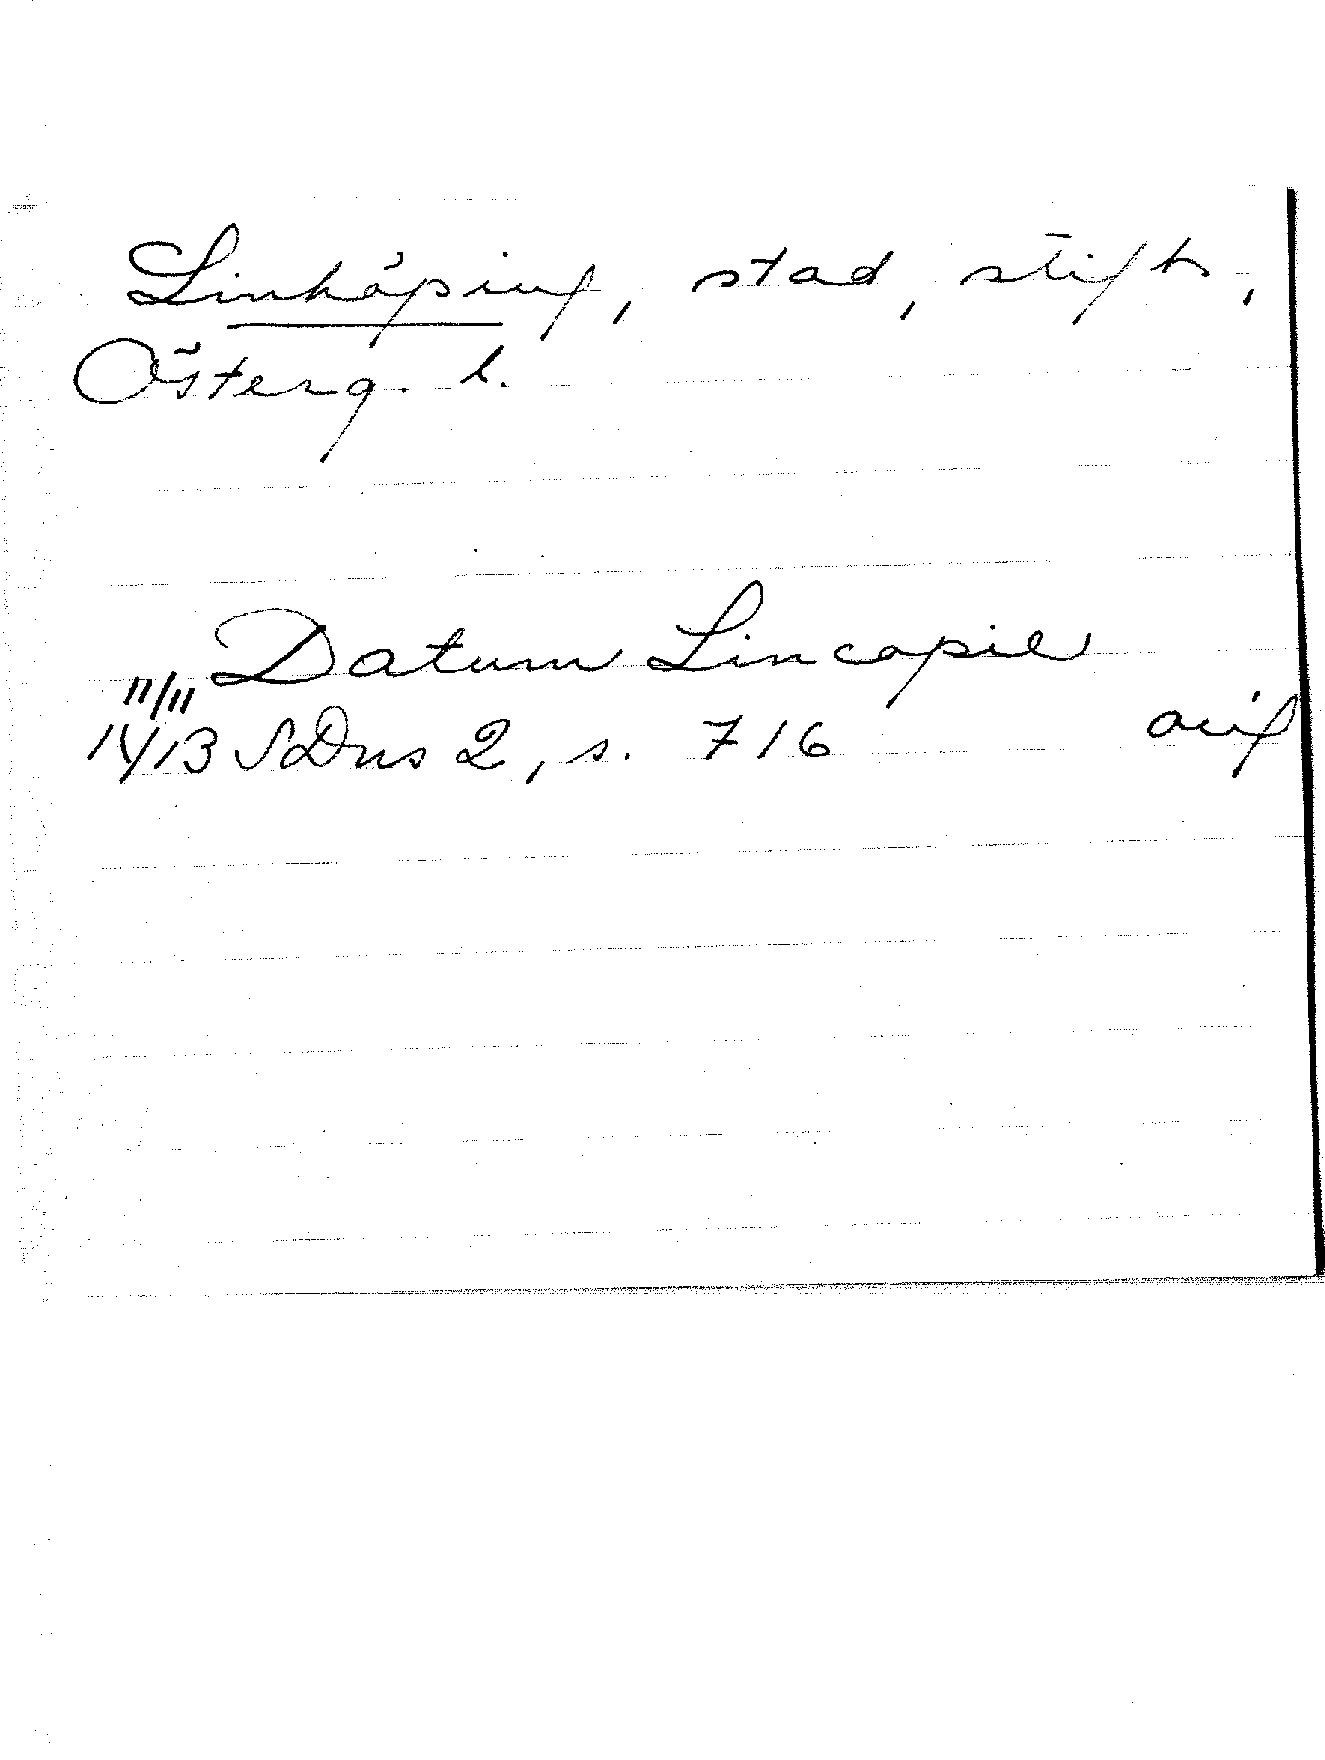 Linköping, stad, stift,
Österg. l.
Datum Lincopie
11/11
1413 SDns 2, s. 716 avs